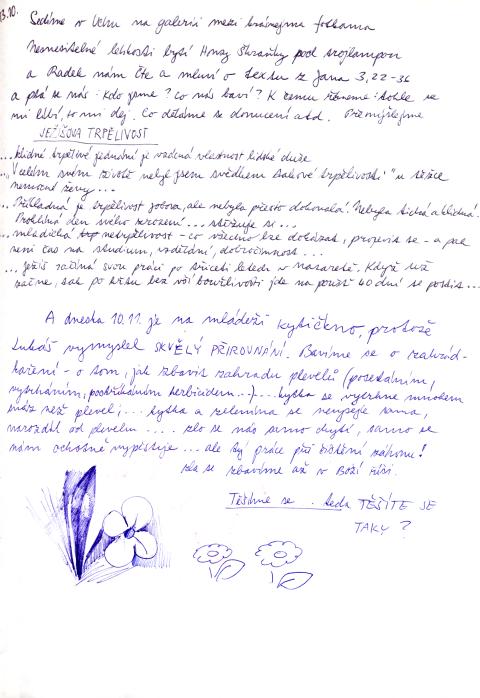 13.10. Sedíme v Uchu na galerii mezi krásnýma fotkama
Nesnesitelné lehkosti bytí Honzy Skramky pod stojlampou
a Radek nám čte a mluví o textu z Jana 3,22-36
a ptá se nás: Kdo jsme? Co nás baví? K čemu řekneme: tohle se
mi líbí, to mi dej. Co děláme se donucení atd. Přemýšlejme
JEŽÍŠOVA TRPĚLIVOST
... klidné trpělivé jednání je vzácná vlastnost lidské duše
... "V celém svém životě nebyl jsem svědkem takové trpělivosti" u těžce
nemocné ženy...
... Příkladná je trpělivost Joba, ale nebyla přesto dokonalá. Nebyla tichá a klidná.
Proklíná den svého zrození... stěžuje si...
... mladická netrpělivost - co všechno lze dokázat, projevit se - a pak
není čas na studium, vzdělání, dobročinnost...
... Ježíš začíná svou práci po třiceti letech v Nazaretě. Když už
začne, tak po křtu bez vší bouřlivosti jde na poušť 40 dní se postit...
A dneska 10.11. je na mládeži kytičkno, protože
Lukáš vymyslel SKVĚLÝ PŘIROVNÁNÍ. Bavíme se o zahrád-
kaření - o tom, jak zbavit zahradu plevelů (posekáním,
vytrháním, postříkáním herbicidem...)... kytka se vytrhne mnohem
snáz než plevel;... kytka a zelenina se nevysěje sama,
narozdíl od plevelu..... zlo se nás samo chytí, samo se
nám ochotně vyplístuje... ale ty práce při čistění záhonu!
zla se zbavíme až v Boží říši.
Těšíme se... teda TĚŠÍTE SE
TAKY?